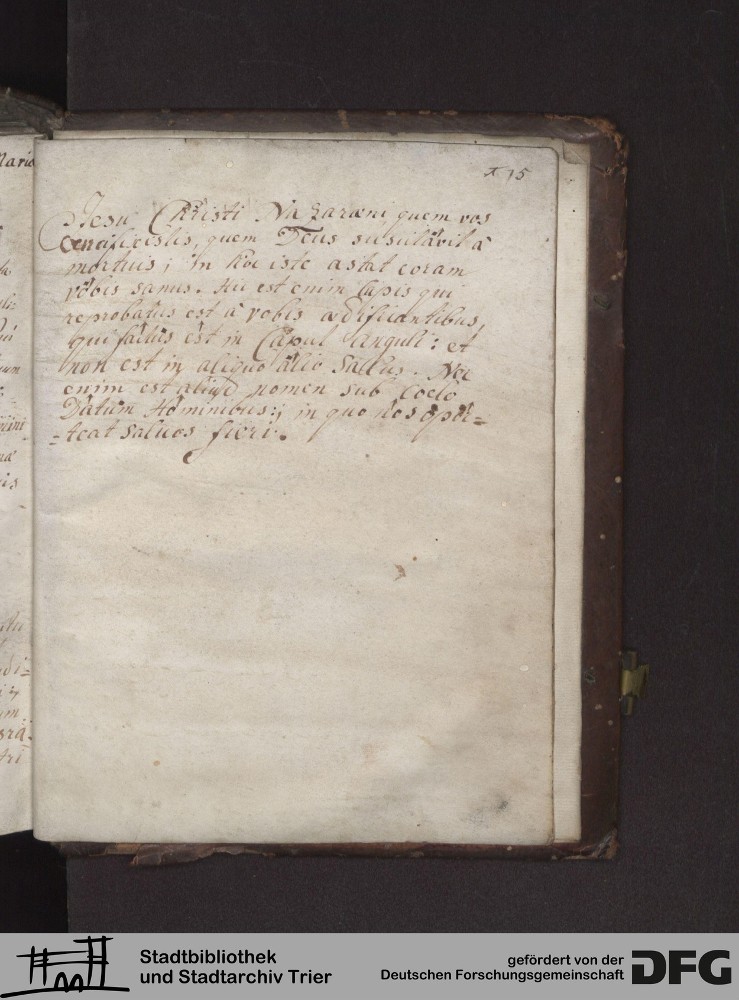 15
Jesu Christi Nazaraeni, quem vos
Crucifixistis, quem Deus suscitavit à
mortuis; in hoc iste astat coram
vobis sanus. Hic est enim Lapis qui
reprobatus est à vobis aedificantibus,
qui factus est in Caput anguli: et
non est in aliquo alio Salus. Nec
enim est aliud nomen sub Coelo
Datum Hominibus; in quo nos opor=
=teat salvos fieri.
Stadtbibliothek
und Stadtarchiv Trier
gefördert von der
Deutschen Forschungsgemeinschaft
DFG